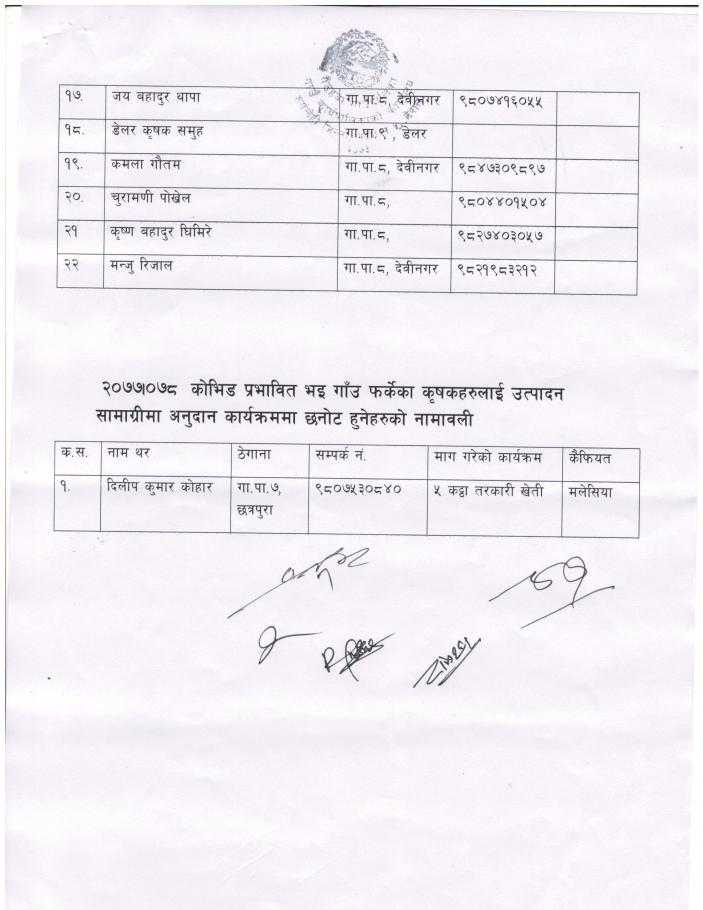 १७. जय बहादुर थापा गा.पा.८, देवीनगर ९८०७४१६०५५
१८. डेलर कृषक समुह गा.पा.९, डेलर
१९. कमला गौतम गा.पा.८, देवीनगर ९८४७३०९८९७
२०. चुरामणी पोख्रेल गा.पा.८, ९८०४४०१५०४
२१ कृष्ण बहादुर घिमिरे गा.पा.८, ९८२७४०३०५७
२२ मन्जु रिजाल गा.पा.८, देवीनगर ९८२१९८३२१२
२०७७।०७८ कोभिड प्रभावित भइ गाँउ फर्केका कृषकहरुलाई उत्पादन
सामाग्रीमा अनुदान कार्यक्रममा छनोट हुनेहरुको नामावली
क.स. नाम थर ठेगाना सम्पर्क नं. माग गरेको कार्यक्रम कैफियत
१. दिलीप कुमार कोहार गा.पा.७, ९८०७५३०८४० ५ कट्ठा तरकारी खेती मलेसिया
छत्रपुरा